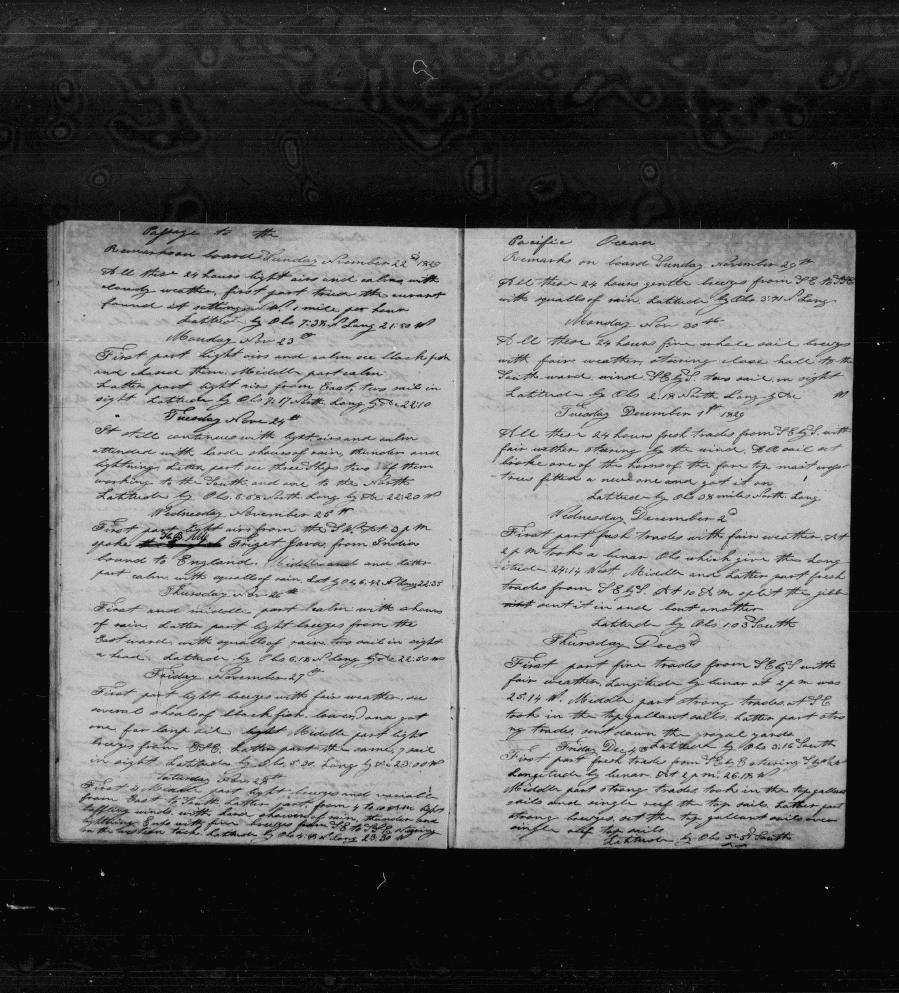 Passage to the
Remarks on board Sunday November 22d 1829
All these 24 hours light airs and calms with
cloudy weather, first part tried the current
found it setting 1 mile per hour
Latitude by Obs 7:38 N Long 21:50 W
Monday Nov 23d
First part light airs and calm see black fish
and chased them. Middle part calm
Latter part light airs from East, two sail in
sight Latitude by Obs 7:17 North Long by Do 22:10
Tuesday Nove 24th
It still continues with light airs and calm
attended with hard shours of rain, thunder and
lightning. Latter part, see three Ships two of them
working to the South and one to the North
Latitude by Obs. 6:58 North Long by Do 22:20 W
Wednesday November 25th
First part light airs from the S.W. At 3 P M
spoke H B My Friget Java from Indies
bound to England. Middle and and latter
part calm with squalls of rain. Lat by Ob 6:42 N Long 22:35
Thursday Nov 26th
First and middle part calm with shours
of rain, Latter part light breezes from the
Eastward with squalls of rain, two sail in sight
a head. Latitude by Obs 6:18 N Long by Do 22:50 W
Friday November 27th
First part light breezes with fair weather, see
several shoals of blackfish, lowered and got
one for lamp oil light Middle part light
breezes from ESE. Latter part the same, 7 sail
in sight Latitude by Obs 5:31. Long by Do 23:00 W
Saturday Nov 28th
First & Middle part light breezes and variable
from East to South. Latter part from 4 to 10 A M light
baffling winds, with hard shours of rain, thunder and
lightning. Ends with fine breezes from SE to SSE steering
on the western tack Latitude by Obs 4:41 N Long 23:30 W
Pacific Ocean
Remarks on board Sunday November 29th
All these 24 hours gentle breezes from SE to SSE
with squalls of rain. Latitude by Obs 3:41 N Long
Monday Nov 30th
All these 24 hours fine whole sail breezes
with fair weather, stearing close hall to the
South ward, wind S.E by S. two sail in sight
Latitude by Obs 2:18 North Long by Do W
Tuesday December 1st 1829
All these 24 hours fresh trades from S E by S. with
fair weather stearing by the wind, A A sail at
broke one of the horns of the fore top mast cross
trees fitted a new one and got it on
Latitude by Obs 38 miles North Long
Wednesday December 2d
First part fresh trades with fair weather. At
2 p M took a lunar Obs which give the Long
itude 24:14 West. Middle and latter part fresh
trades from S E by S. At 10 A M split the jibb
sent it in and bent another
Latitude by Obs 1:03 South
Thursday Dec 3d
First part fine trades from S E by S with
fair weather, Longitude by lunar at 2 p m was
25:14 W. Middle part strong trades, at S E
took in the top gallant sails. Latter part stro
ng trades, sent down the royal yards
Latitude by Obs 3:16 South
Friday Dec 4th
First part fresh trades from S E by E stearing
Longitude by lunar At 2 p m 26:18 W
Middle part strong trades, took in the top gallant
sails and single reef the top sails, Latter part
strong breezes, set the top gallant sails over
single reef top sails
Latitude by Obs 5:51 South